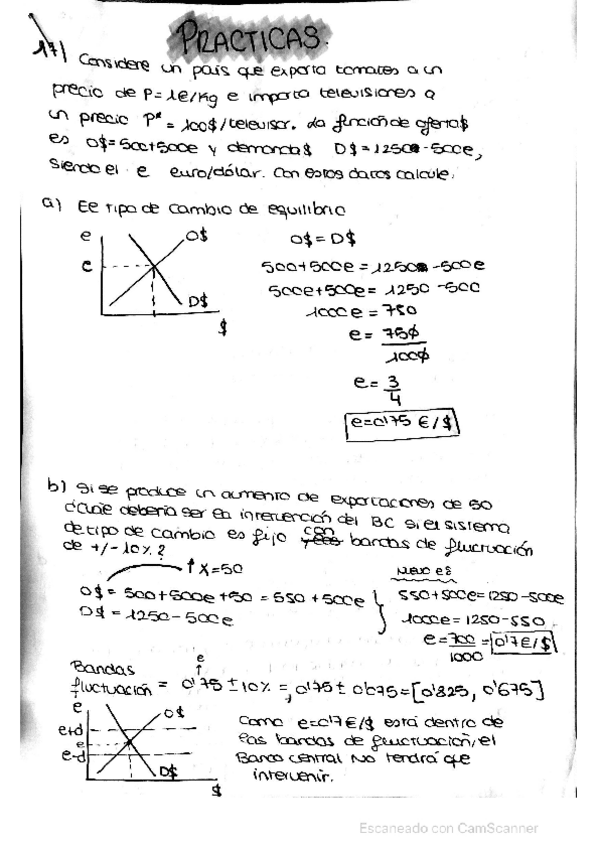 PRACTICAS.
17) Considere un país que exporta tomates a un
precio de P=1€/Kg e importa televisiones a
un precio P*=100$/televisor. La función de oferta$
es O$=500+500e y demanda$ D$=1250-500e,
siendo el e euro/dólar. Con estos datos calcule.
a) El tipo de cambio de equilibrio
e O$
e
D$
$
O$=D$
500+500e=1250-500e
500e+500e=1250-500
1000e=750
e=750/1000
e=3/4
e=0'75 €/$
b) Si se produce un aumento de exportaciones de 50
¿Cuál debería ser la intervención del BC si el sistema
de tipo de cambio es fijo con bandas de fluctuación
de +/-10%?
↑X=50
O$=500+500e+50=550+500e
D$=1250-500e
Nuevo e:
550+500e=1250-500e
1000e=1250-550
e=700/1000=0'7€/$
Bandas
fluctuación = 0'75±10%=0'75±0'075=[0'825, 0'675]
e
e O$
e+d
e
e-d
D$
$
Como e=0'7€/$ está dentro de
las bandas de fluctuación, el
Banco central NO tendrá que
intervenir.
Escaneado con CamScanner